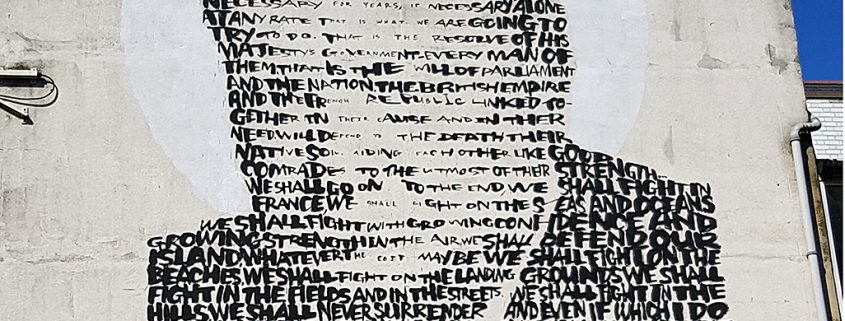 NECESSARY FOR YEARS, IF NECESSARY ALONE
AT ANY RATE THAT IS WHAT WE ARE GOING TO
TRY TO DO. THAT IS THE RESOLVE OF HIS
MAJESTY'S GOVERNMENT-EVERY MAN OF
THEM.THAT IS THE WILL OF PARLIAMENT
AND THE NATION.THE BRITISH EMPIRE
AND THE FRENCH REPUBLIC LINKED TO-
GETHER IN THEIR CAUSE AND IN THEIR
NEED.WILL DEFEND TO THE DEATH THEIR
NATIVE SOIL. AIDING EACH OTHER LIKE GOOD
COMRADES TO THE UTMOST OF THEIR STRENGTH...
WE SHALL GO ON TO THE END,WE SHALL FIGHT IN
FRANCE,WE SHALL FIGHT ON THE SEAS AND OCEANS
WE SHALL FIGHT WITH GROWING CONFIDENCE AND
GROWING STRENGTH IN THE AIR,WE SHALL DEFEND OUR
ISLAND WHATEVER THE COST MAY BE WE SHALL FIGHT ON THE
BEACHES WE SHALL FIGHT ON THE LANDING GROUNDS WE SHALL
FIGHT IN THE FIELDS AND IN THE STREETS. WE SHALL FIGHT IN THE
HILLS WE SHALL NEVER SURRENDER AND EVEN IF WHICH I DO